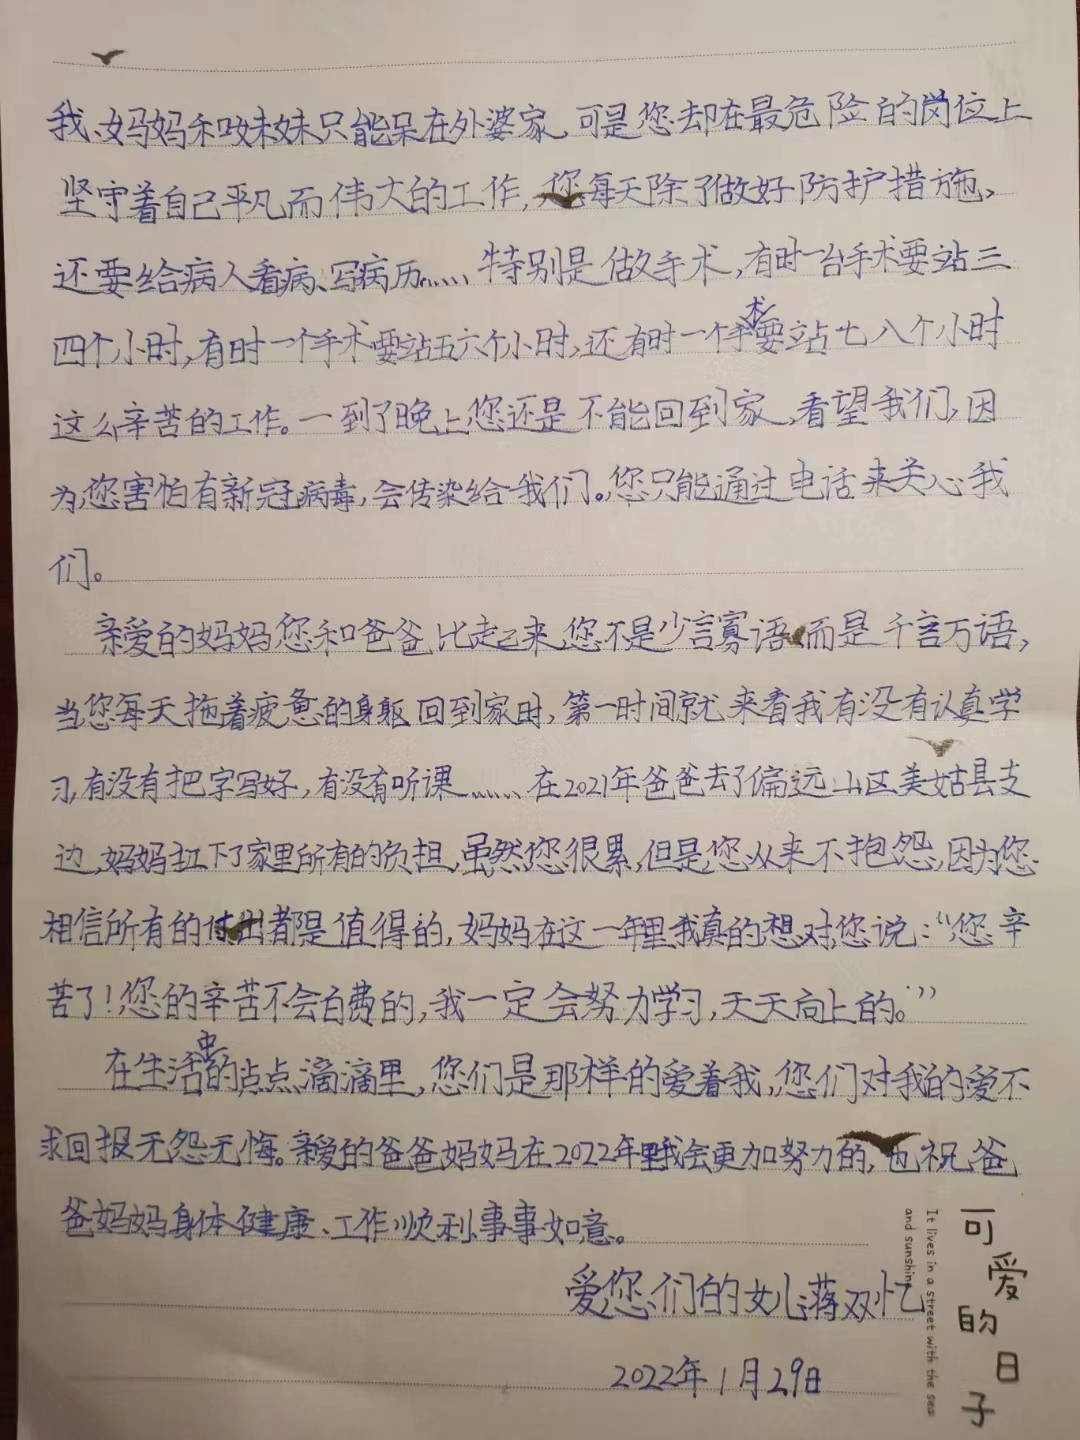 我、妈妈和妹妹只能呆在外婆家,可是您却在最危险的岗位上
坚守着自己平凡而伟大的工作,您每天除了做好防护措施,
还要给病人看病、写病历……特别是做手术,有时一台手术要站三
四个小时,有时一个手术要站五六个小时,还有时一个手术要站七八个小时
这么辛苦的工作。一到了晚上您还是不能回到家,看望我们,因
为,您害怕有新冠病毒,会传染给我们。您只能通过电话来关心我
们。
亲爱的妈妈您和爸爸比起来,您不是少言寡语,而是千言万语,
当您每天拖着疲惫的身躯回到家时,第一时间就来看我有没有认真学
习,有没有把字写好,有没有听课……在2021年爸爸去了偏远山区美姑县支
边,妈妈扛下了家里所有的负担,虽然您很累,但是,您从来不抱怨,因为您
相信所有的付出都是值得的,妈妈在这一年里我真的想对您说:“您辛
苦了!您的辛苦不会白费的,我一定会努力学习,天天向上的。”
在生活中的点点滴滴里,您们是那样的爱着我,您们对我的爱不
求回报无怨无悔。亲爱的爸爸妈妈在2022年里我会更加努力的,也祝爸
爸妈妈身体健康、工作顺利、事事如意。
爱您们的女儿:蒋双忆
2022年1月29日
可爱的日子
It lives in a street with the sea
and sunshine